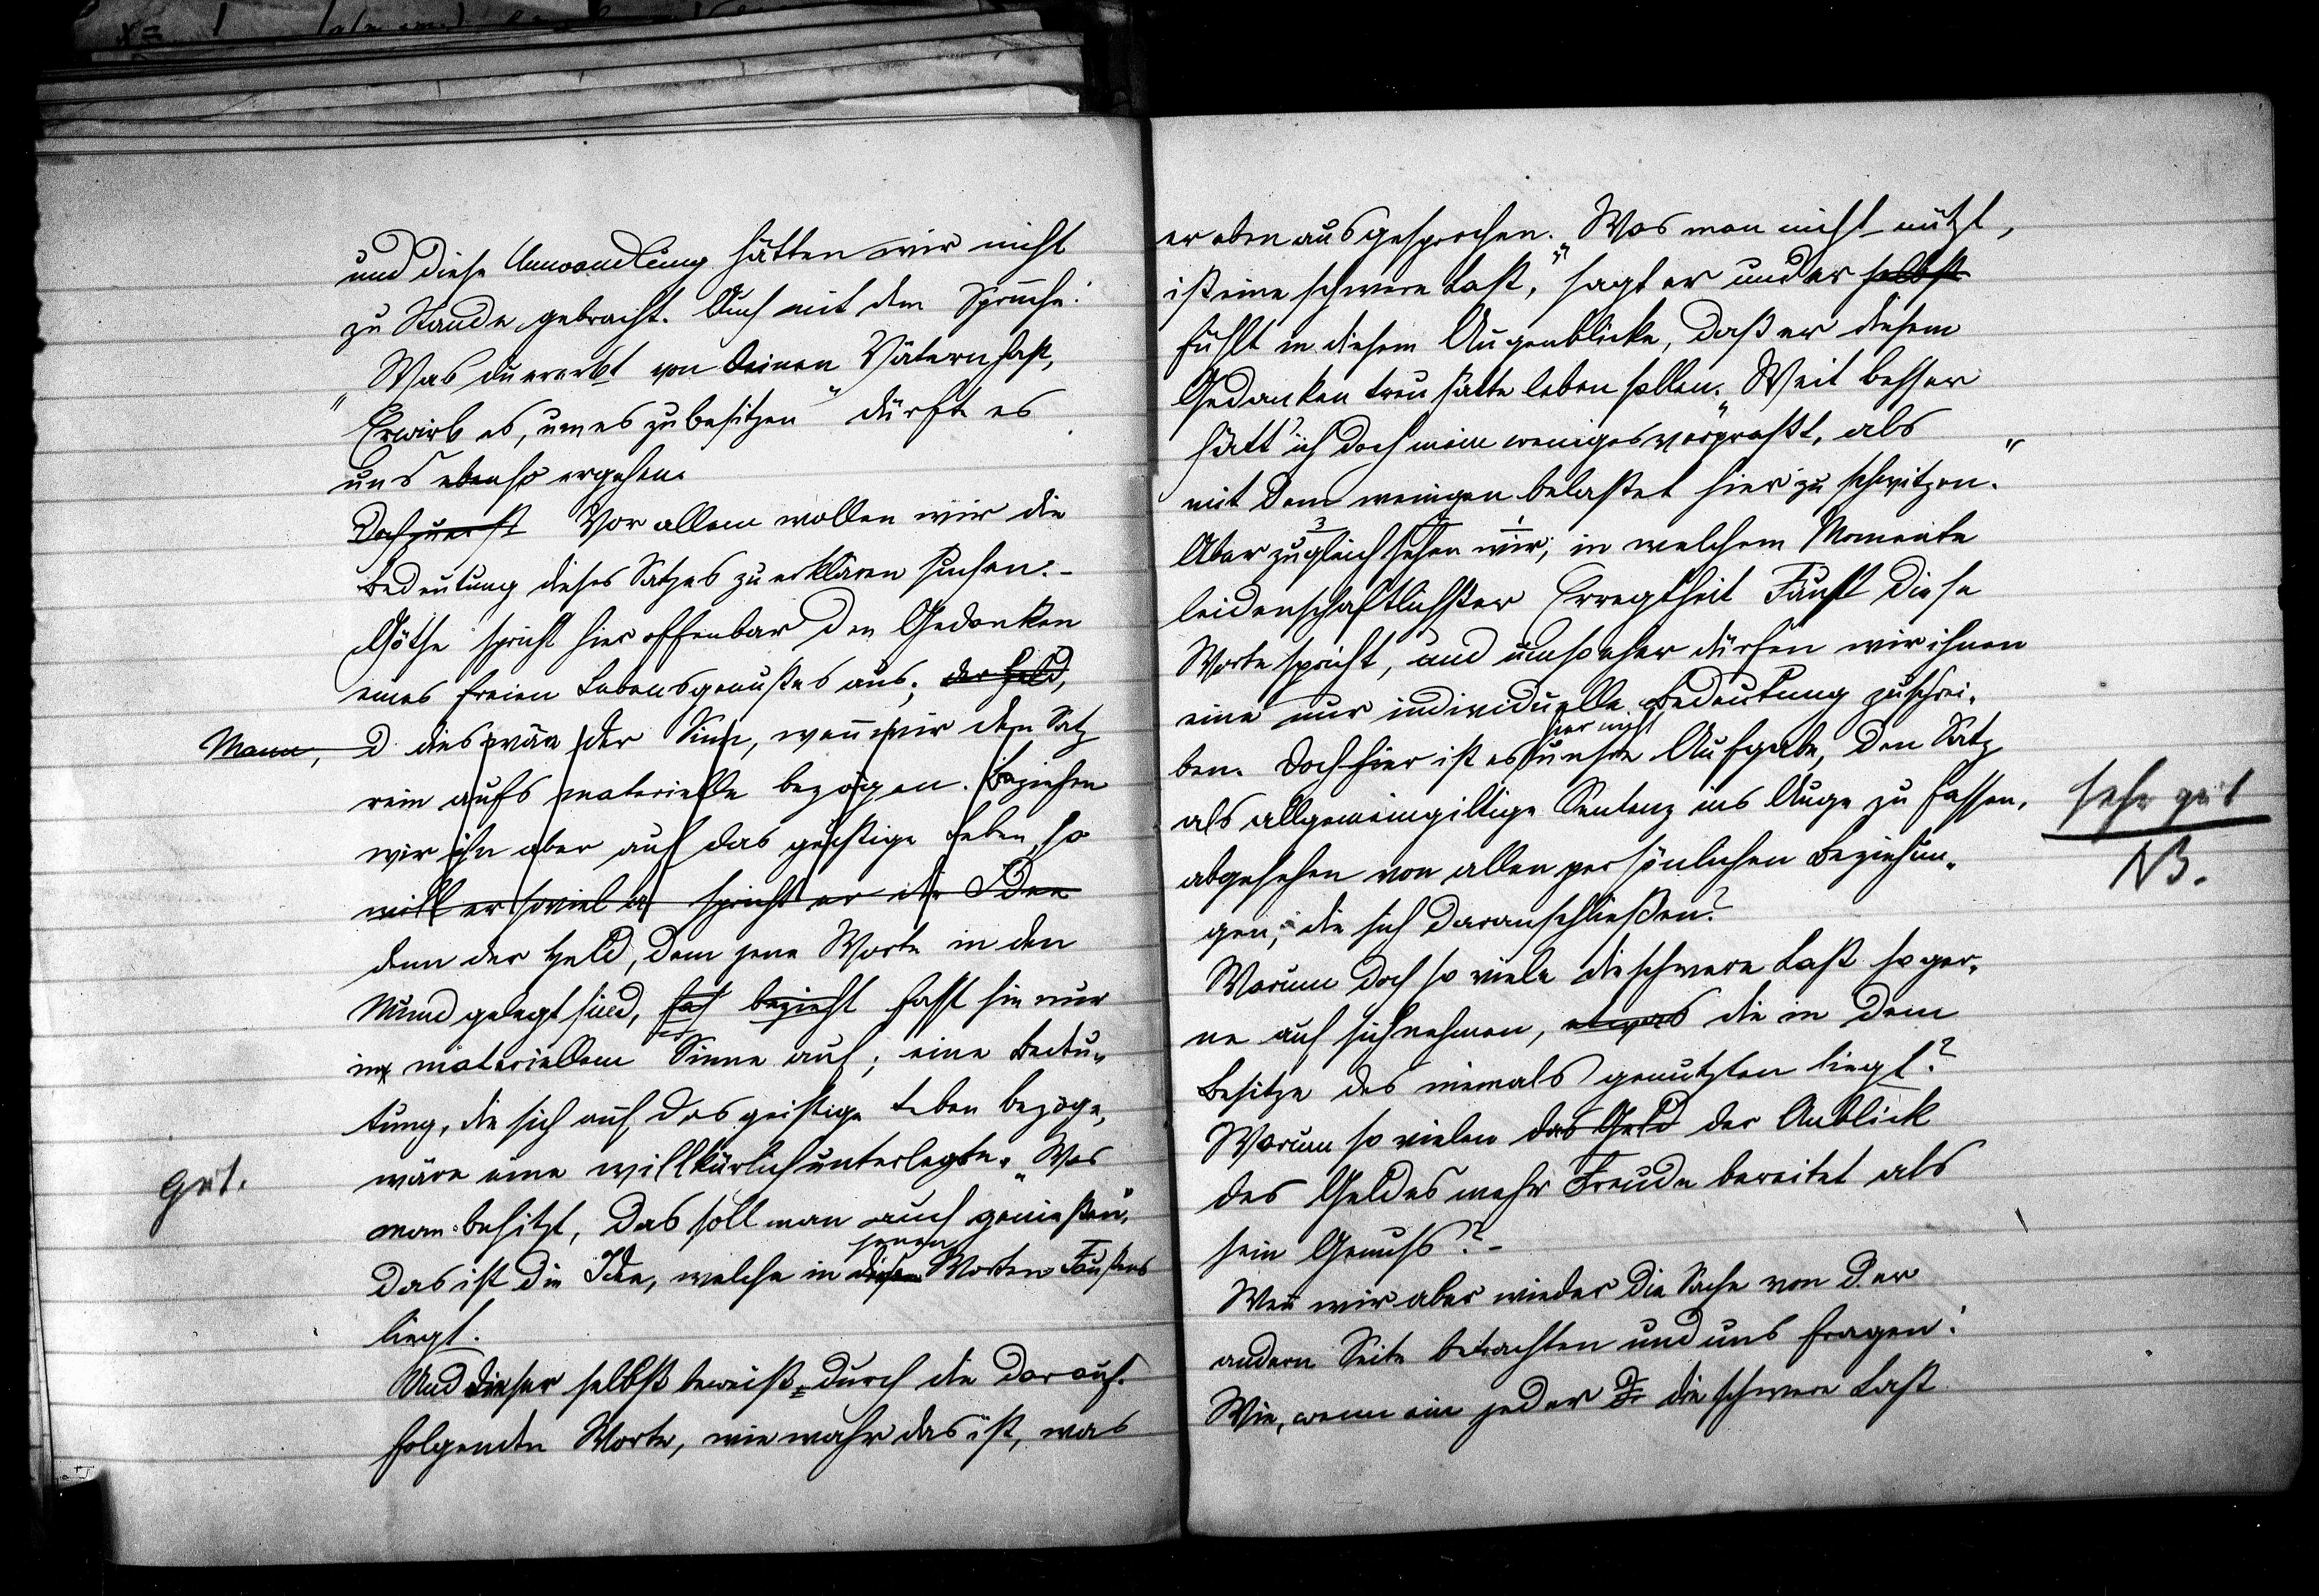 und diese Umwandlung hätten wir nicht
zu Stande gebracht. Auch mit dem Spruche:
„Was du ererbt von deinen Vätern hast,
Erwirb es, um es zu besitzen“ dürfte es
uns ebenso ergehen.
Doch zuerst Vor allem wollen wir die
Bedeutung dieses Satzes zu erklären suchen. –
Göthe spricht hier offenbar den Gedanken
eines freien Lebensgenußes aus; der Held,
Mann, D dies wäre der Sinn, wenn wir den Satz
rein aufs materielle bezögen. Beziehen
wir ihn aber auf das geistige Leben, so
will er soviel spricht er die Idee
denn der Held, dem jene Worte in den
Mund gelegt sind, faß bezieht fasst sie nur
in materiellem Sinne auf; eine Bedeu-
tung, die sich auf das geistige Leben bezöge,
wäre eine willkürlich unterlegte. „Was
gut.
man besitzt, das soll man auch genießen“,
jenen
das ist die Idee, welche in diesen Worten Faustens
liegt.
Und dieser selbst beweist durch die darauf-
folgenden Worte, wie wahr das ist, was
er eben ausgesprochen. „Was man nicht nützt,
ist eine schwere Last,“ sagt er und er selbst
fühlt in diesem Augenblicke, daß er diesem
Gedanken treu hätte leben sollen. „Weit besser
hätt' ich doch mein weniges verpraßt, als
mit dem wenigen belastet hier zu schwitzen.“
3 2 1
Aber zugleich sehen wir, in welchem Momente
leidenschaftlichster Erregtheit Faust diese
Worte spricht, und umso eher dürfen wir ihnen
eine nur individuelle Bedeutung zuschrei-
hier nicht
ben. Doch hier ist es unsre Aufgabe, den Satz
als allgemeingiltige Sentenz ins Auge zu fassen,
sehr gut
abgesehen von allen persönlichen Beziehun-
NB.
gen, die sich daranschließen?
Warum doch so viele die schwere Last so ger-
ne auf sich nehmen, etwas die in dem
Besitze des niemals genutzten liegt?
Warum so vielen das Geld der Anblick
des Geldes mehr Freude bereitet als
sein Genuß? –
Wenn wir aber wieder die Sache von der
andern Seite betrachten und uns fragen:
Wie, wenn ein jeder D die schwere Last